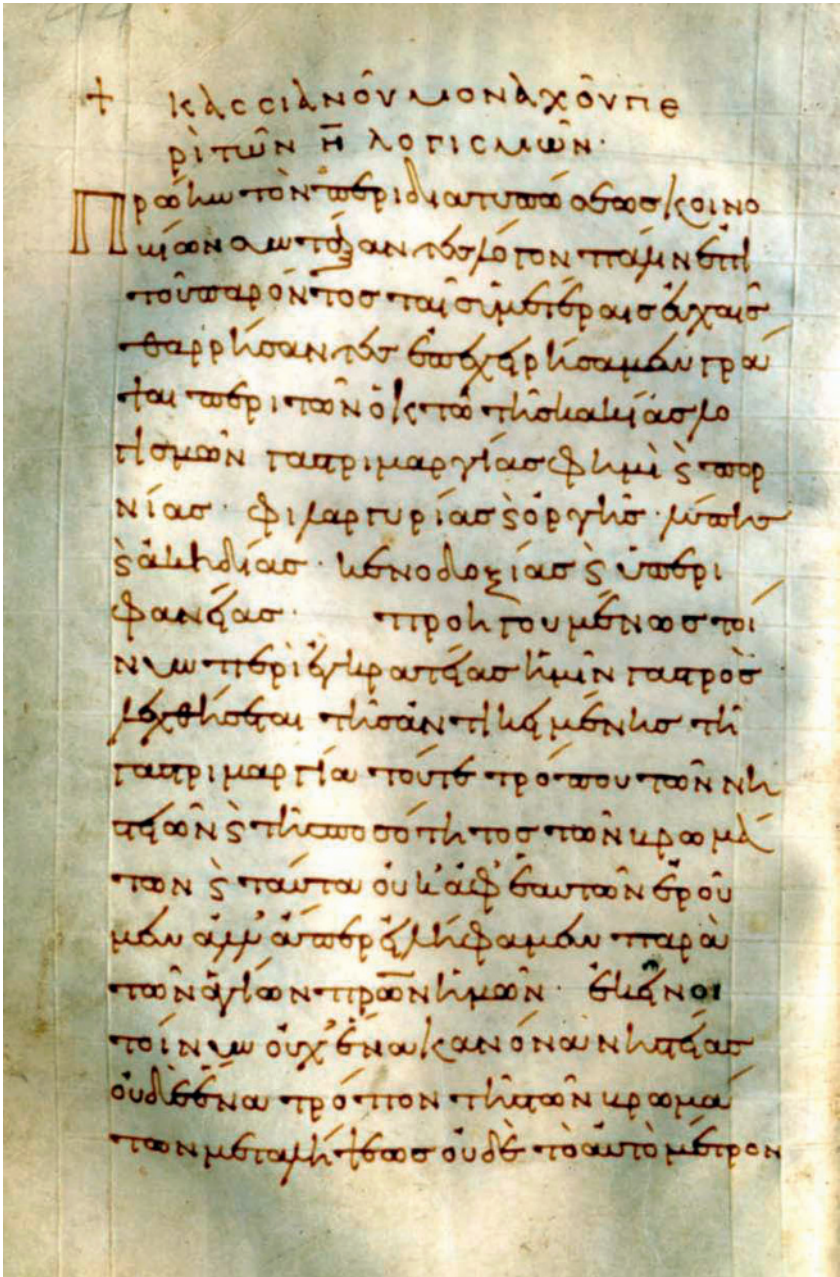 + ΚΑССΙΑΝΟῦ ΜΟΝΑΧΟῦ ΠΕ
ΡὶΤῶΝ Η̄ ΛΟΓΙСΜῶΝ·
Πρώην τὸν περὶ διατυπώσεως κοινο
βίων συντάξαντες λόγον πάλιν ἐπὶ
τοῦ παρόντος ταῖς ὑμετέραις εὐχαῖς
θαρρήσαντες ἐπεχειρήσαμεν γρά
ψαι περὶ τῶν ὀκτὼ τῆς κακίας λο
γισμῶν γαστριμαργίας φημὶ ϛ πορ
νίας· φιλαργυρίας ϛ ὀργῆς· λύπης
ϛ ἀκηδίας· κενοδοξίας ϛ ὑπερι
φανείας· προηγουμένως τοί
νυν περὶ ἐγκρατείας ἡμῖν γὰρ πρὸς
λεχθήσεται τῆς ἀντικειμένης τῆ
γαστριμαργία τοῦτε τρόπου τῶν νη
στειῶν ϛ τῆς ποσότητος τῶν βρωμά
των ϛ ταῦτα οὐκ ἀφ' ἑαυτῶν ἐροῦ
μεν ἀλλ' ἅπερ εἰλήφαμεν παρὰ
τῶν ἁγίων πρ̅ων ἡμῶν· ἐκεῖνοι
τοίνυν οὐχ ἕνα κανόνα νηστείας
οὐδὲ ἕνα τρόπον τῆς τῶν βρωμά
των μεταλήψεως οὐδὲ τὸ αὐτὸ μέτρον